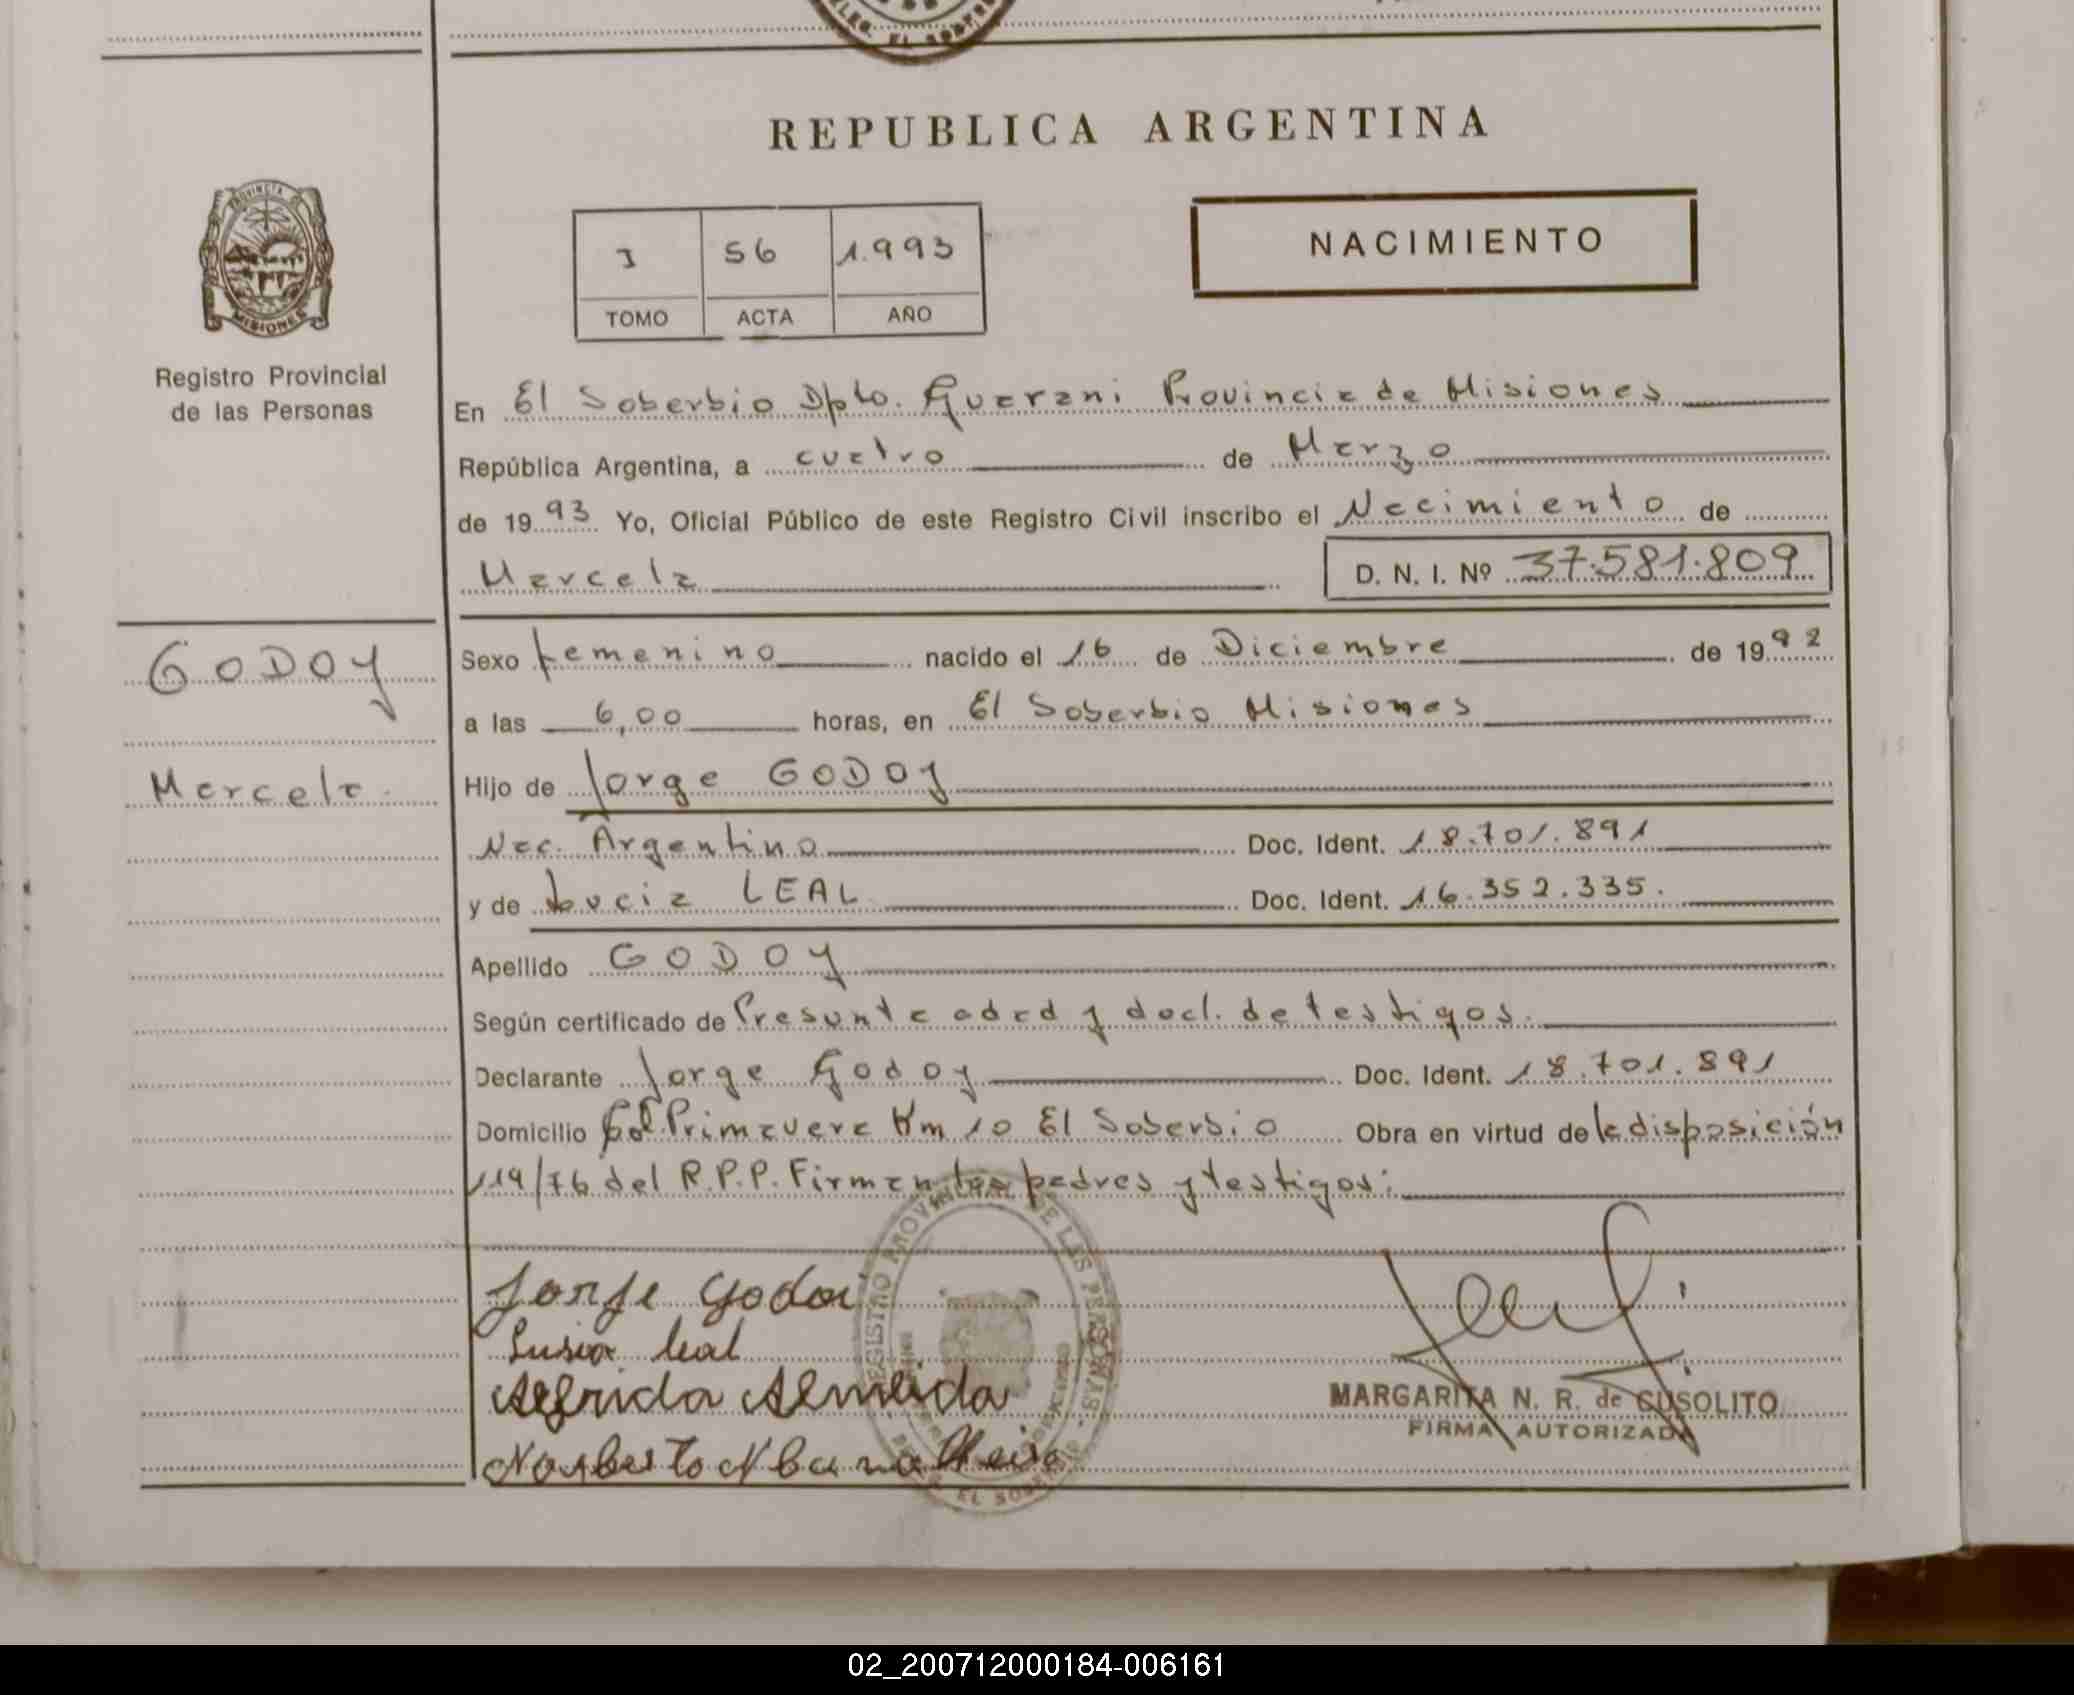 REPUBLICA ARGENTINA
PROVINCIA DE MISIONES
Registro Provincial
de las Personas
I 56 1.993
TOMO ACTA AÑO
NACIMIENTO
En El Soberbio Dpto. Guarani Provincia de Misiones
República Argentina, a cuatro de Marzo
de 1993 Yo, Oficial Público de este Registro Civil inscribo el Nacimiento de
Marcela D. N. I. Nº 37.581.809
GODOY
Marcela
Sexo femenino nacido el 16 de Diciembre de 1992
a las 6,00 horas, en El Soberbio Misiones
Hijo de Jorge GODOY
Nac. Argentino Doc. Ident. 18.701.891
y de Lucia LEAL Doc. Ident. 16.352.335.
Apellido GODOY
Según certificado de Presunta edad y decl. de testigos.
Declarante Jorge Godoy Doc. Ident. 18.701.891
Domicilio Col. Primavera Km 10 El Soberbio Obra en virtud de la disposición
119/76 del R.P.P. Firman los padres y testigos:
REGISTRO PROVINCIAL DE LAS PERSONAS
Jorge Godoi
Lusia leal
Almeida
Norberto
MARGARITA N. R. de CUSOLITO
FIRMA AUTORIZADA
02_200712000184-006161